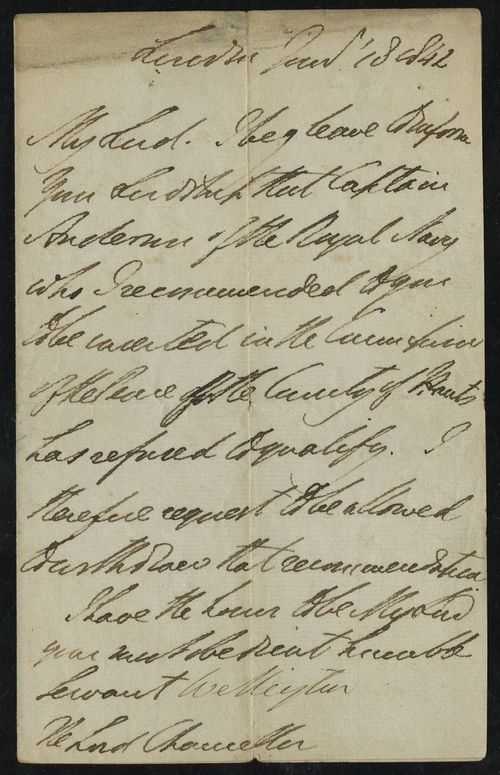 London Jany 18 1842
My Lord. I beg leave to inform
Your Lordship that Captain
Anderson of the Royal Navy
who I recommended to you
to be inserted in the Commission
of the Peace of the County of Hants
has refused to qualify. I
therefore request to be allowed
to withdraw that recommendation
I have the honor to be My Lord
your most obedient humble
Servant Wellington
The Lord Chancellor